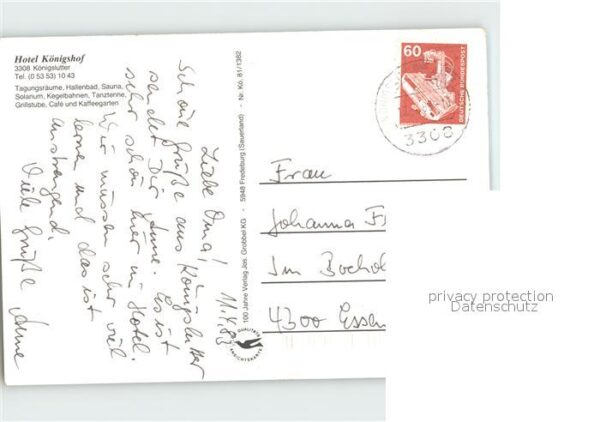 Hotel Königshof
3308 Königslutter
Tel. (0 53 53) 10 43
Tagungsräume, Hallenbad, Sauna,
Solarium, Kegelbahnen, Tanztenne,
Grillstube, Café und Kaffeegarten
11.4.83
Liebe Oma!
Schöne Grüße aus Königslutter
sendet Dir Anne. Es ist
sehr schön hier im Hotel.
Wir müssen sehr viel
lernen und das ist
anstrengend.
Viele Grüße Anne
100 Jahre Verlag Jos. Grobbel KG - 5948 Fredeburg (Sauerland) - Nr. Ko. 81/1382
QUALITÄTS
ANSICHTSKARTE
60
DEUTSCHE BUNDESPOST
3308
Frau
Johanna F
Im Bochol
4300 Essen
privacy protection
Datenschutz